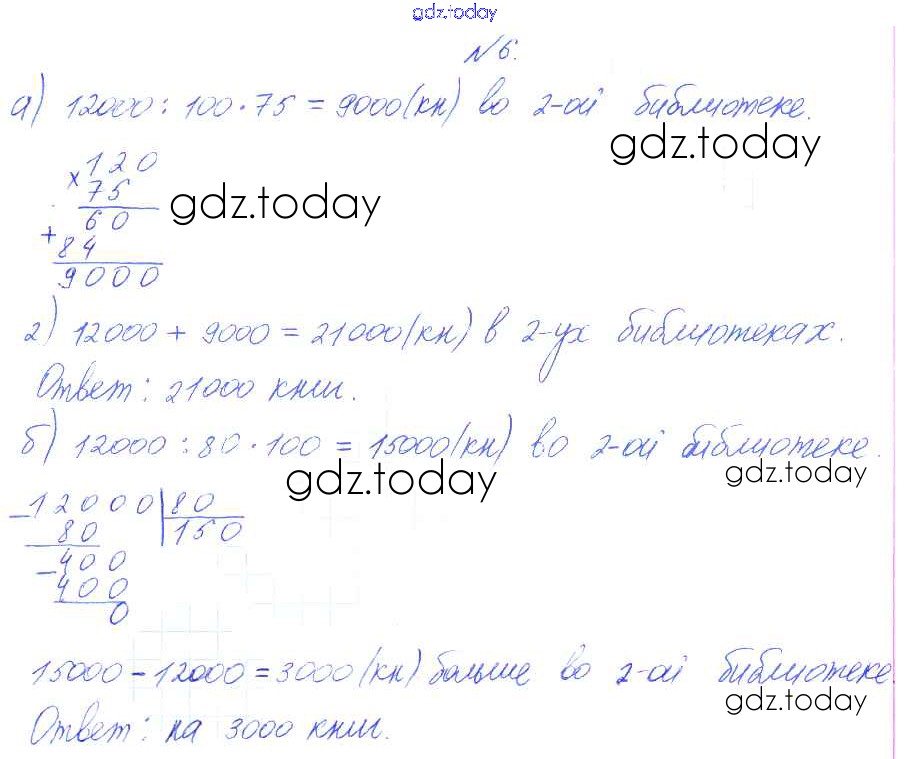 gdz.today
№ 6.
а) 12000 : 100 · 75 = 9000 (кн) во 2-ой библиотеке.
gdz.today
× 120
75
gdz.today
60
+ 84
9000
2) 12000 + 9000 = 21000 (кн) в 2-ух библиотеках.
Ответ: 21000 книг.
б) 12000 : 80 · 100 = 15000 (кн) во 2-ой библиотеке.
gdz.today
gdz.today
- 12000 | 80
80 | 150
- 400
400
0
15000 - 12000 = 3000 (кн) больше во 2-ой библиотеке.
gdz.today
Ответ: на 3000 книг.